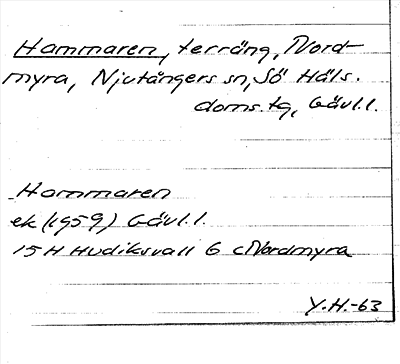 Hammaren, terräng, Nord-
myra, Njutångers sn, Sö Häls.
doms.tg, Gävl.l.
Hammaren
ek (1959) Gävl.l.
15 H Hudiksvall 6 c Nordmyra
Y.H.-63